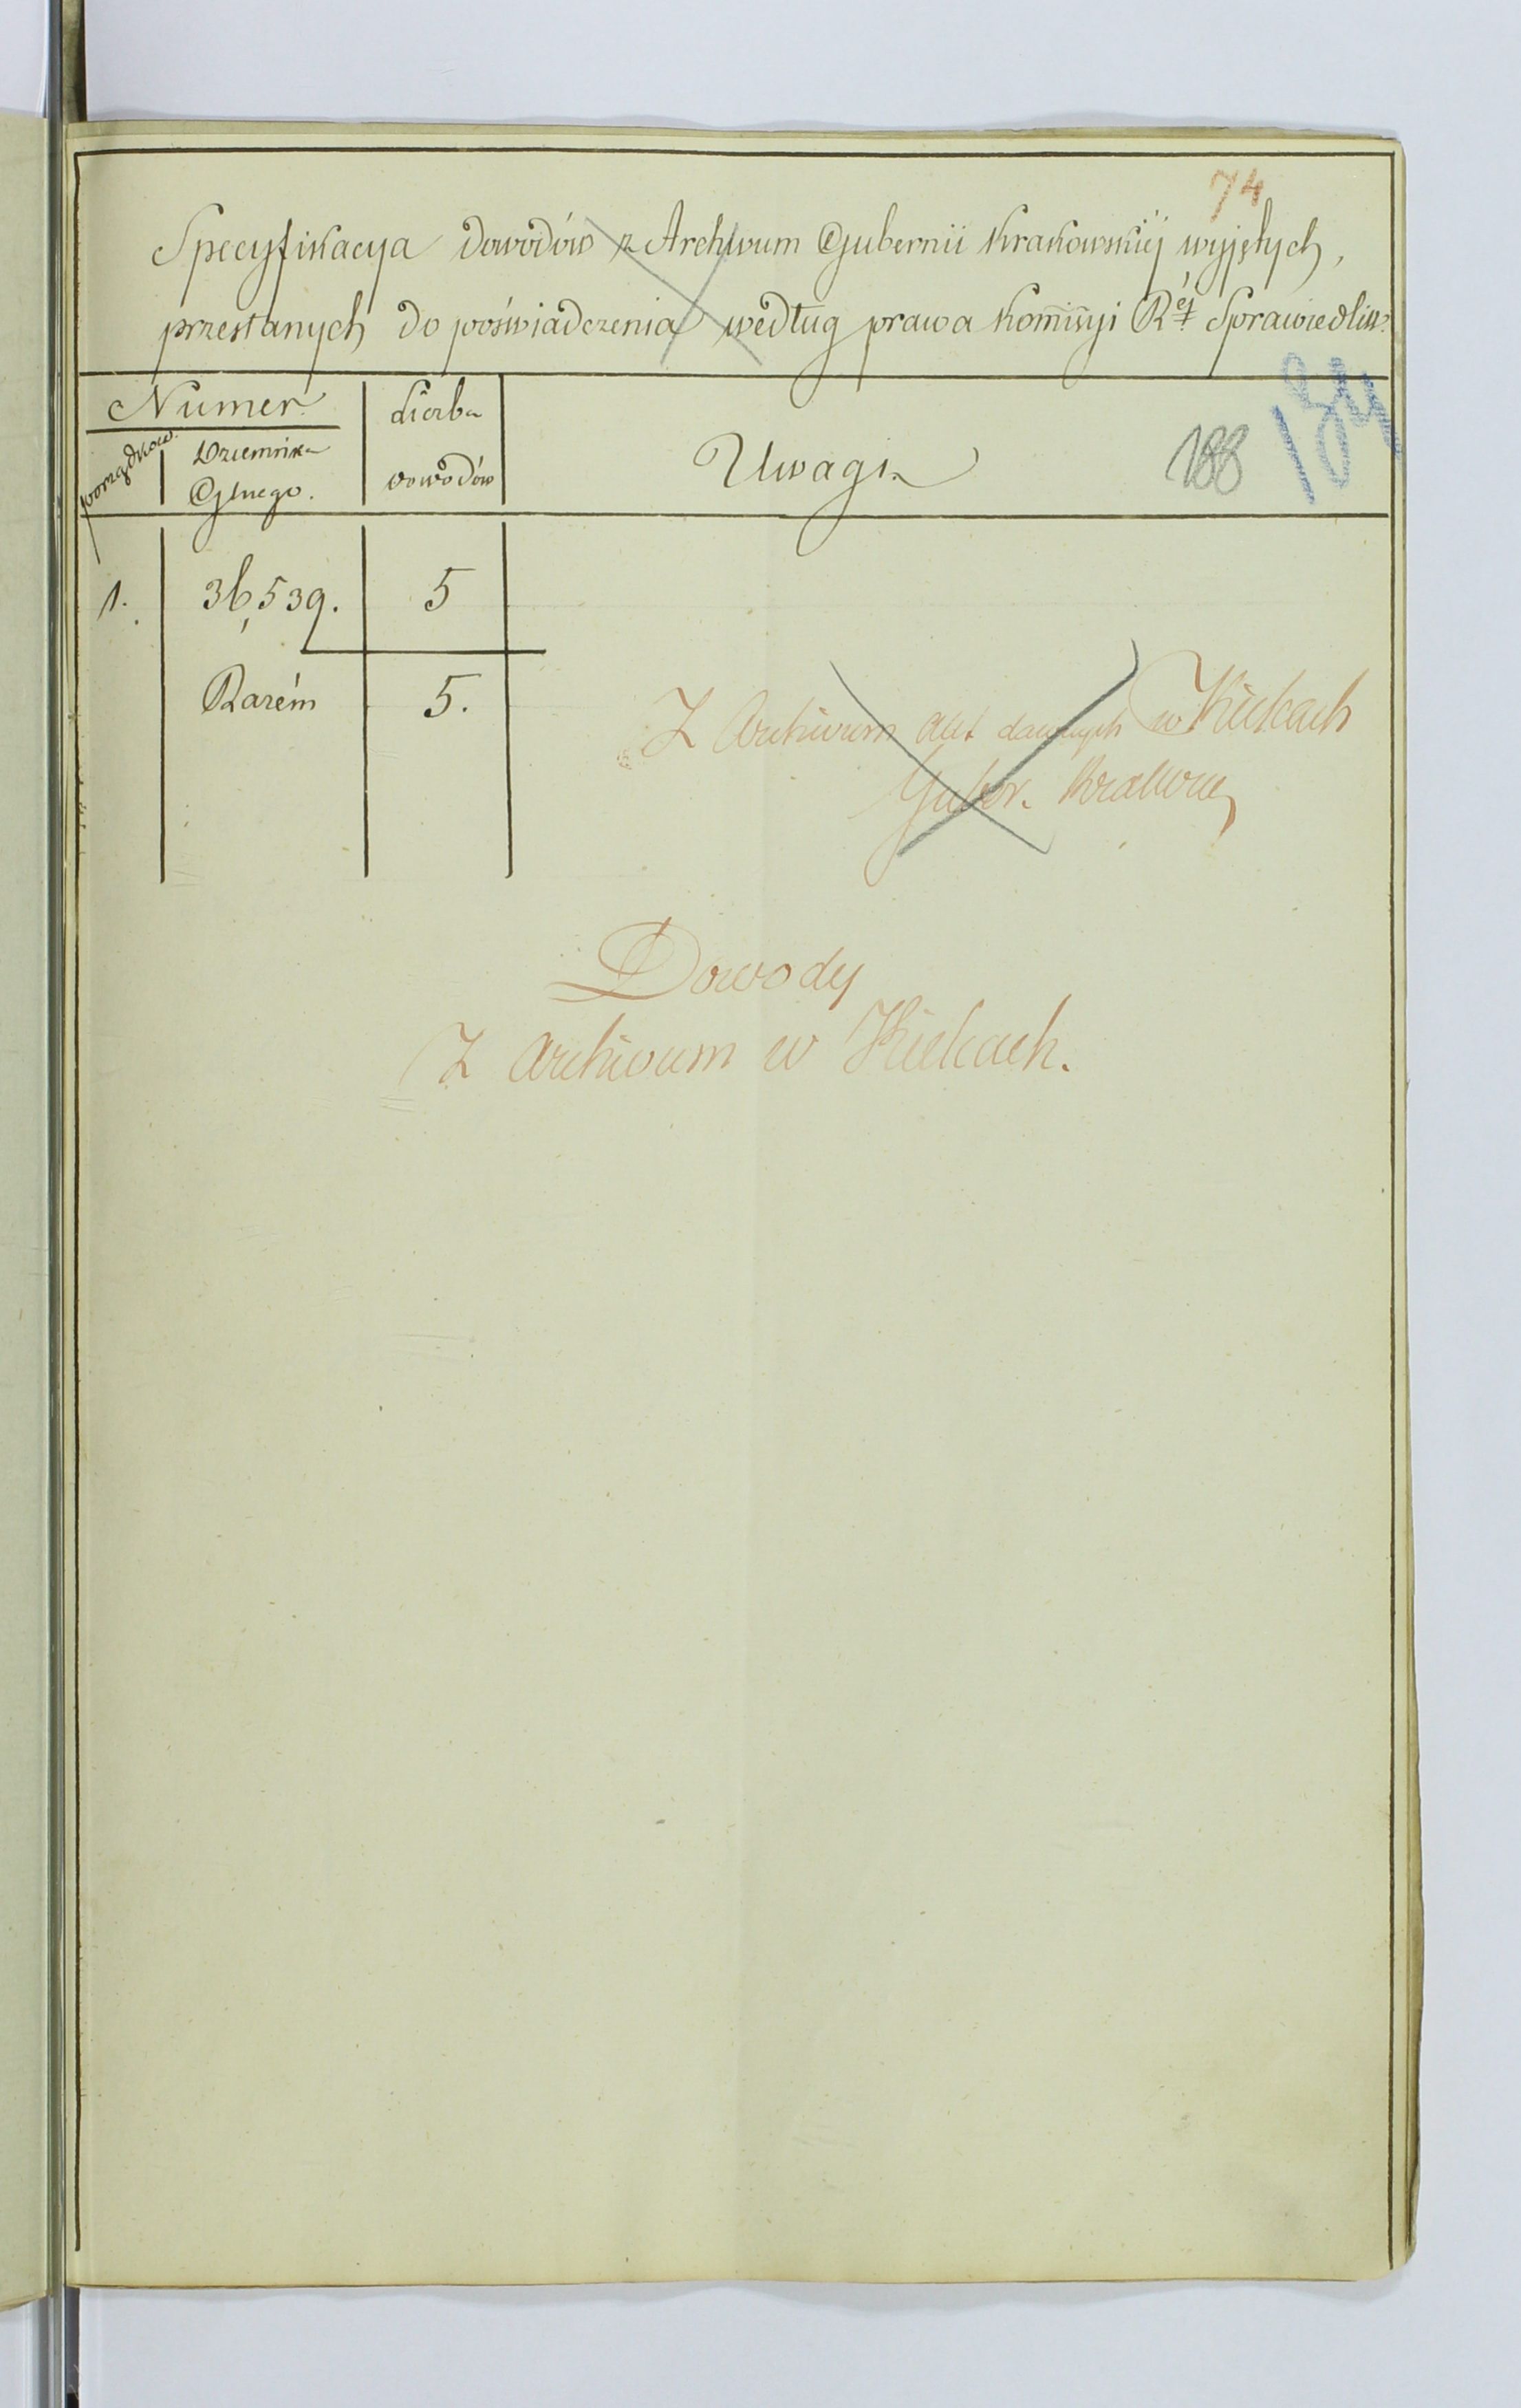 74
Specyfikacya dowodów z Archiwum Gubernii Krakowskiéj wyjętych,
przesłanych do poświadczenia według prawa Kommisyi R. Sprawiedliw.
Numer Liczba
porządkow. Dziennika dowodów Uwagi 188 184
Głnego.
1. 36,539. 5
Razém 5.
Z Archiwum akt dawnych w Kielcach
Guber. Krakow
Dowody
Z Archivum w Kielcach.